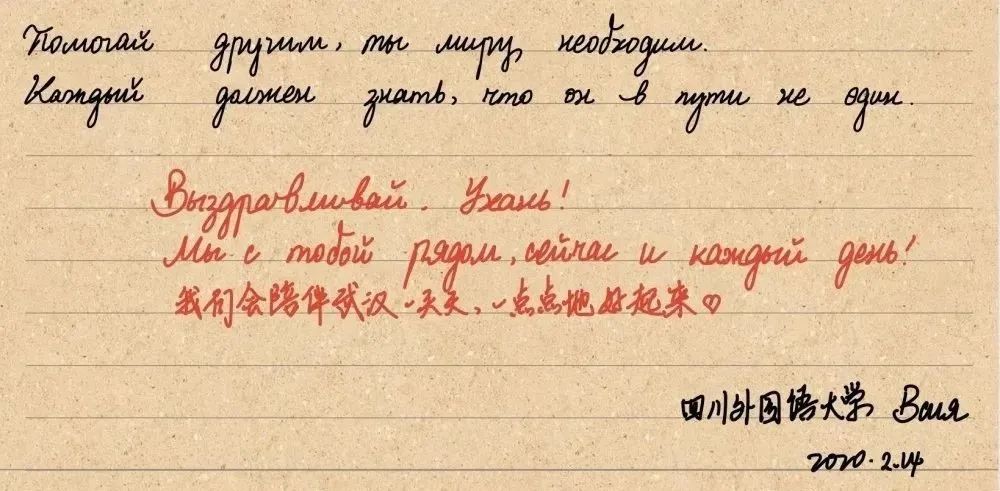 Помогай другим, ты миру необходим.
Каждый должен знать, что он в пути не один.
Выздравливай. Ухань!
Мы с тобой рядом, сейчас и каждый день!
我们会陪伴武汉一天天,一点点地好起来♡
四川外国语大学 Вася
2020.2.14